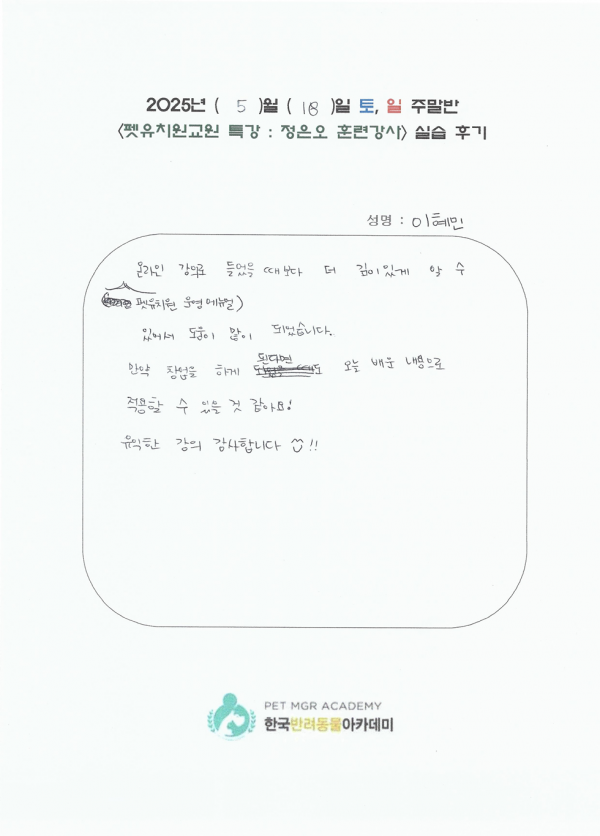 2025년 ( 5 )월 ( 18 )일 토, 일 주말반
<펫유치원교원 특강 : 정은오 훈련강사> 실습 후기
성명 : 이혜민
온라인 강의로 들었을 때보다 더 깊이있게 알 수
펫유치원 운영 메뉴얼)
있어서 도움이 많이 되었습니다.
만약 창업을 하게 된다면 오늘 배운 내용으로
적용할 수 있을 것 같아요!
유익한 강의 감사합니다 !!
PET MGR ACADEMY
한국반려동물아카데미